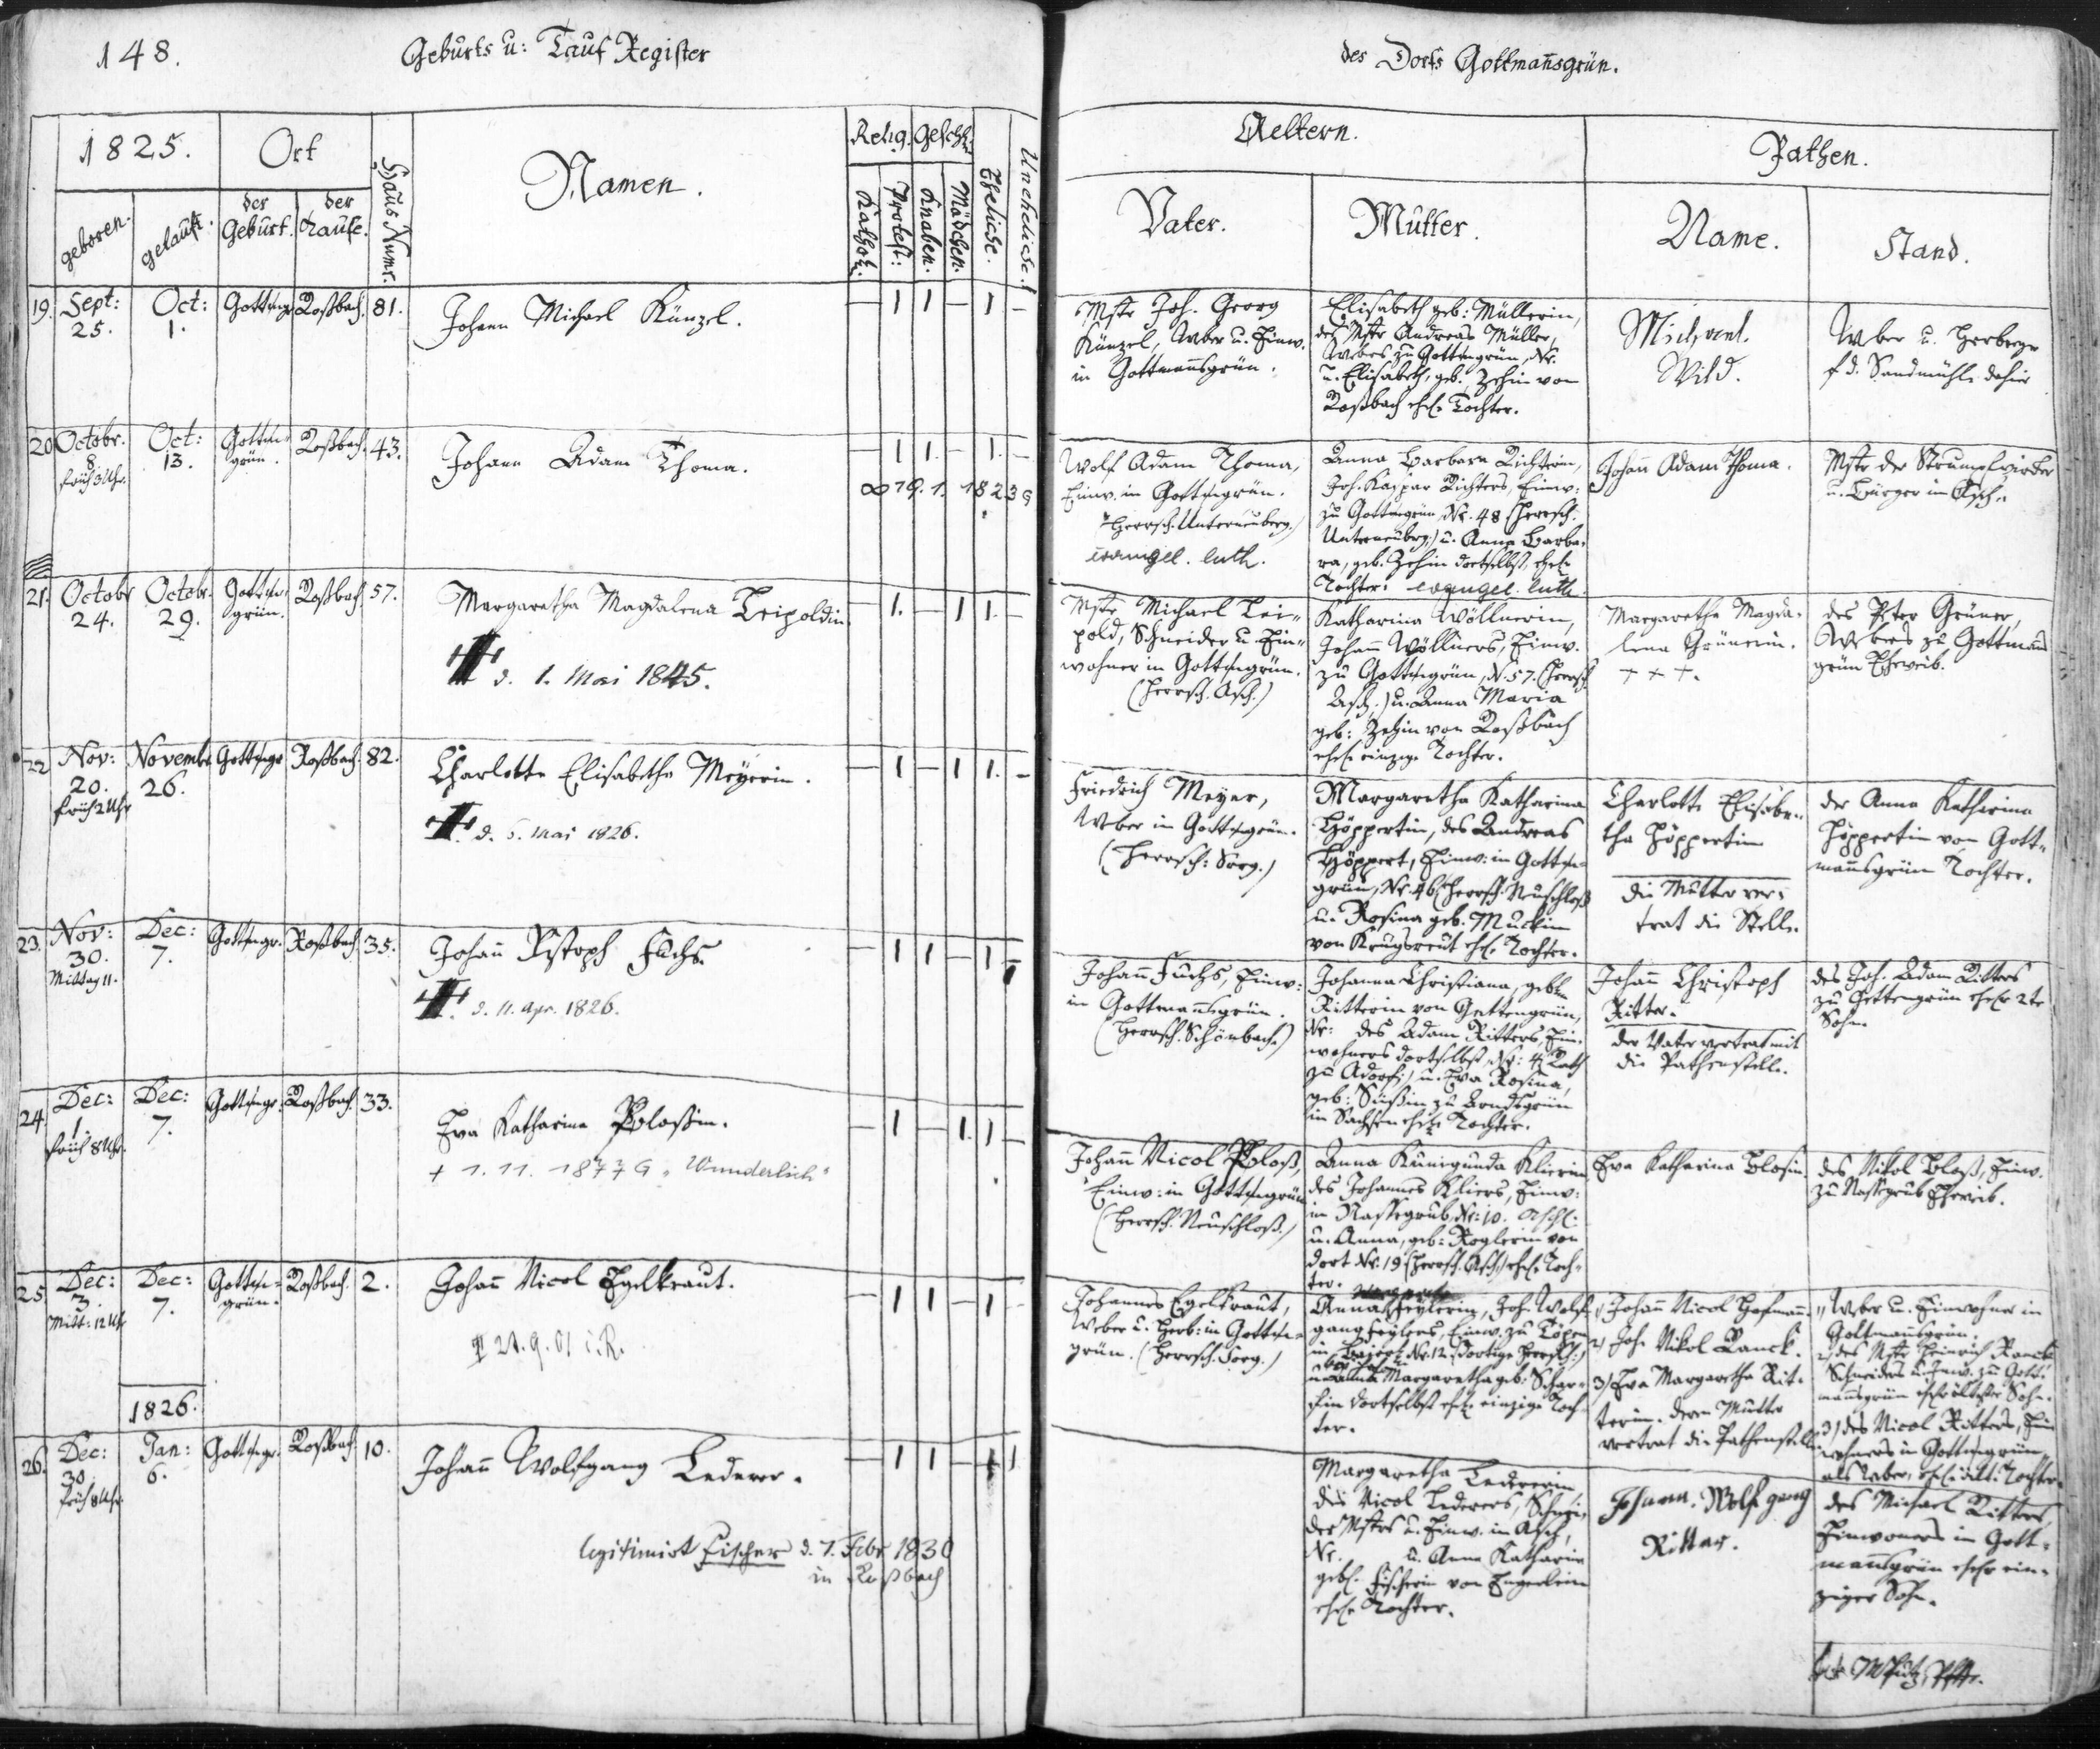 148.
Geburts u: Tauf Register
des Dorfs Gottmañsgrün.
1825.
Ort
Haus Numr.
Namen.
Relig.
Geschl:
Eheliche.
Uneheliche.
geboren.
getauft.
der Geburt.
der Taufe.
Kathol:
Protest:
Knaben.
Mädchen.
Aeltern.
Pathen.
Vater.
Mutter.
Name.
Stand.
19. Sept: 25. Oct: 1. Gottmgr Roßbach. 81.
Johann Michael Künzel.
— 1 1 — 1 —
Mstr Joh. Georg
Künzel, Weber u. Einw.
in Gottmannsgrün.
Elisabeth geb: Müllerin,
des Mstr Andreas Müller,
Webers zu Gottmgrün, Nr.
u. Elisabeth, geb. Zehin von
Roßbach ehel. Tochter.
Wild.
Weber u. Herberger
f d. Sandmühle dahier
20 Octobr. 8. früh 3 Uhr. Oct: 13. Gottm=
grün. Roßbach. 43.
Johann Adam Thoma.
∞ 19. 1. 1823 G
— 1 1. — 1. —
Wolf Adam Thoma,
Einw. in Gottmgrün.
(Herrsch. Unterneuberg.)
evangel. luth.
Anna Barbara Richterin,
Joh. Kaspar Richters, Einw:
zu Gottmgrün, Nr. 48 (Herrsch.
Unterneubrg.) u. Anna Barba=
ra, geb. Zehin dortselbst, ehel.
Tochter: evangel. luth.
Johañ Adam Thoma.
Mstr der Strumpfwirker
u. Bürger in Asch.
21. Octobr 24. Octobr. 29. Gottm=
grün. Roßbach 57.
Margaretha Magdalena Leipoldin.
d. 1. Mai 1845.
— 1. — 1 1. —
Mstr Michael Lei=
pold, Schneider u. Ein=
wohner in Gottmgrün.
(Herrsch. Asch.)
Katharina Wöllnerin,
Johañ Wöllners, Einw.
zu Gottmgrün, N. 57. (Herrsch.
Asch.) u. Anna Maria
geb: Zehin von Roßbach
ehel. einzige Tochter.
Margaretha Magda=
lena Grünerin.
+ + +.
des Peter Grüner,
Webers zu Gottmañs
grün Eheweib.
22 Nov: 20. früh 2 Uhr Novembr 26. Gottmgr Roßbach. 82.
Charlotte Elisabetha Meyerin.
d. 5. Mai 1826.
— 1 — 1 1. —
Friedrich Meyer,
Weber in Gottmgrün.
(Herrsch: Sorg.)
Margaretha Katharina
Höppertin, des Andreas
Höppert, Einw: in Gottm=
grün, Nr. 46 (Herrsch. Neuschloß
u. Rosina geb. Mückin
von Krugsreut ehel. Tochter.
Charlotte Elisabe=
tha Höppertin
die Mutter ver=
trat die Stelle.
der Anna Katharina
Höppertin von Gott=
mañsgrün Tochter.
23. Nov: 30. Mittag 11. Dec: 7. Gottmgr. Roßbach 35.
Johañ Xstoph Fuchs.
d. 11. Apr. 1826.
— 1 1 — 1 —
Johañ Fuchs, Einw:
in Gottmañsgrün.
(Herrsch. Schönbach.)
Johanna Christiana, gebl.
Ritterin von Gettengrün,
Nr: des Adam Ritters, Ein=
wohners dortselbst, Nr: 4 (Rath
zu Adorf.) u. Eva Rosina,
geb: Süßin zu Arndtsgrün
in Sachsen ehel. Tochter.
Johañ Christoph
Ritter.
der Vater vertrat mit
die Pathenstelle.
des Joh. Adam Ritters
zu Gettengrün ehel. 2te
Sohn.
24. Dec: 1. früh 8 Uhr. Dec: 7. Gottmgr. Roßbach. 33.
Eva Katharina Ploßin.
+ 1. 11. 1877 G. "Wunderlich"
— 1 — 1. 1 —
Johañ Nicol Ploß,
Einw: in Gottmgrün
(Herrsch. Neuschloß.)
Anna Kunigunda Klierin
des Johannes Kliers, Einw:
in Nassegrub, Nr: 10. Asch:
u. Anna, geb: Roglerin von
dort Nr. 19 (Herrsch. Asch.) ehel. Toch=
ter.
Eva Katharina Ploßin.
des Nikol Ploß, Einw.
zu Nassegrub Eheweib.
25. Dec: 3. Mitt: 12 Uhr Dec: 7. Gottm=
grün. Roßbach. 2.
Johañ Nicol Egelkraut.
21. 9. 01 i. R.
— 1 1 — 1 —
Johannes Egelkraut,
Weber u. Herb: in Gottm=
grün. (Herrsch. Sorg.)
Anna Feylerin, Joh. Wolf=
gang Feylers, Einw. zu Töpen
in Baiern Nr. 12. (dortige Herrsch.)
Margaretha geb: Schar=
fin dortselbst ehel. einzige Toch=
ter.
1) Johañ Nicol Hofmann.
2) Joh. Nikol Ranck.
3) Eva Margaretha Rit=
terin. deren Mutter
vertrat die Pathenstelle.
1) Weber u. Einwohner in
Gottmañsgrün.
2) des Mstr Heinrich Ranck
Schneiders u. Einw. zu Gott=
mañsgrün ehel. ältester Sohn.
3) des Nicol Ritters, Ein
wohners in Gottmgrün,
als Weber, ehel. ält. Tochter.
1826.
26. Dec: 30. früh 8 Uhr. Jan: 6. Gottmgr. Roßbach. 10.
Johañ Wolfgang Lederer.
legitimirt Fischer d. 7. Febr 1830
in Roßbach
— 1 1 — 1
Margaretha Ledererin,
des Nicol Lederers,
Mstrs u. Einw. in Asch,
Nr. u. Anna Katharina
gebl. Fischerin von Engerlein
ehel. Tochter.
Johann. Wolfgang
Ritter.
des Michael Ritters,
Einwoners in Gott=
mañsgrün ehel. ein=
ziger Sohn.